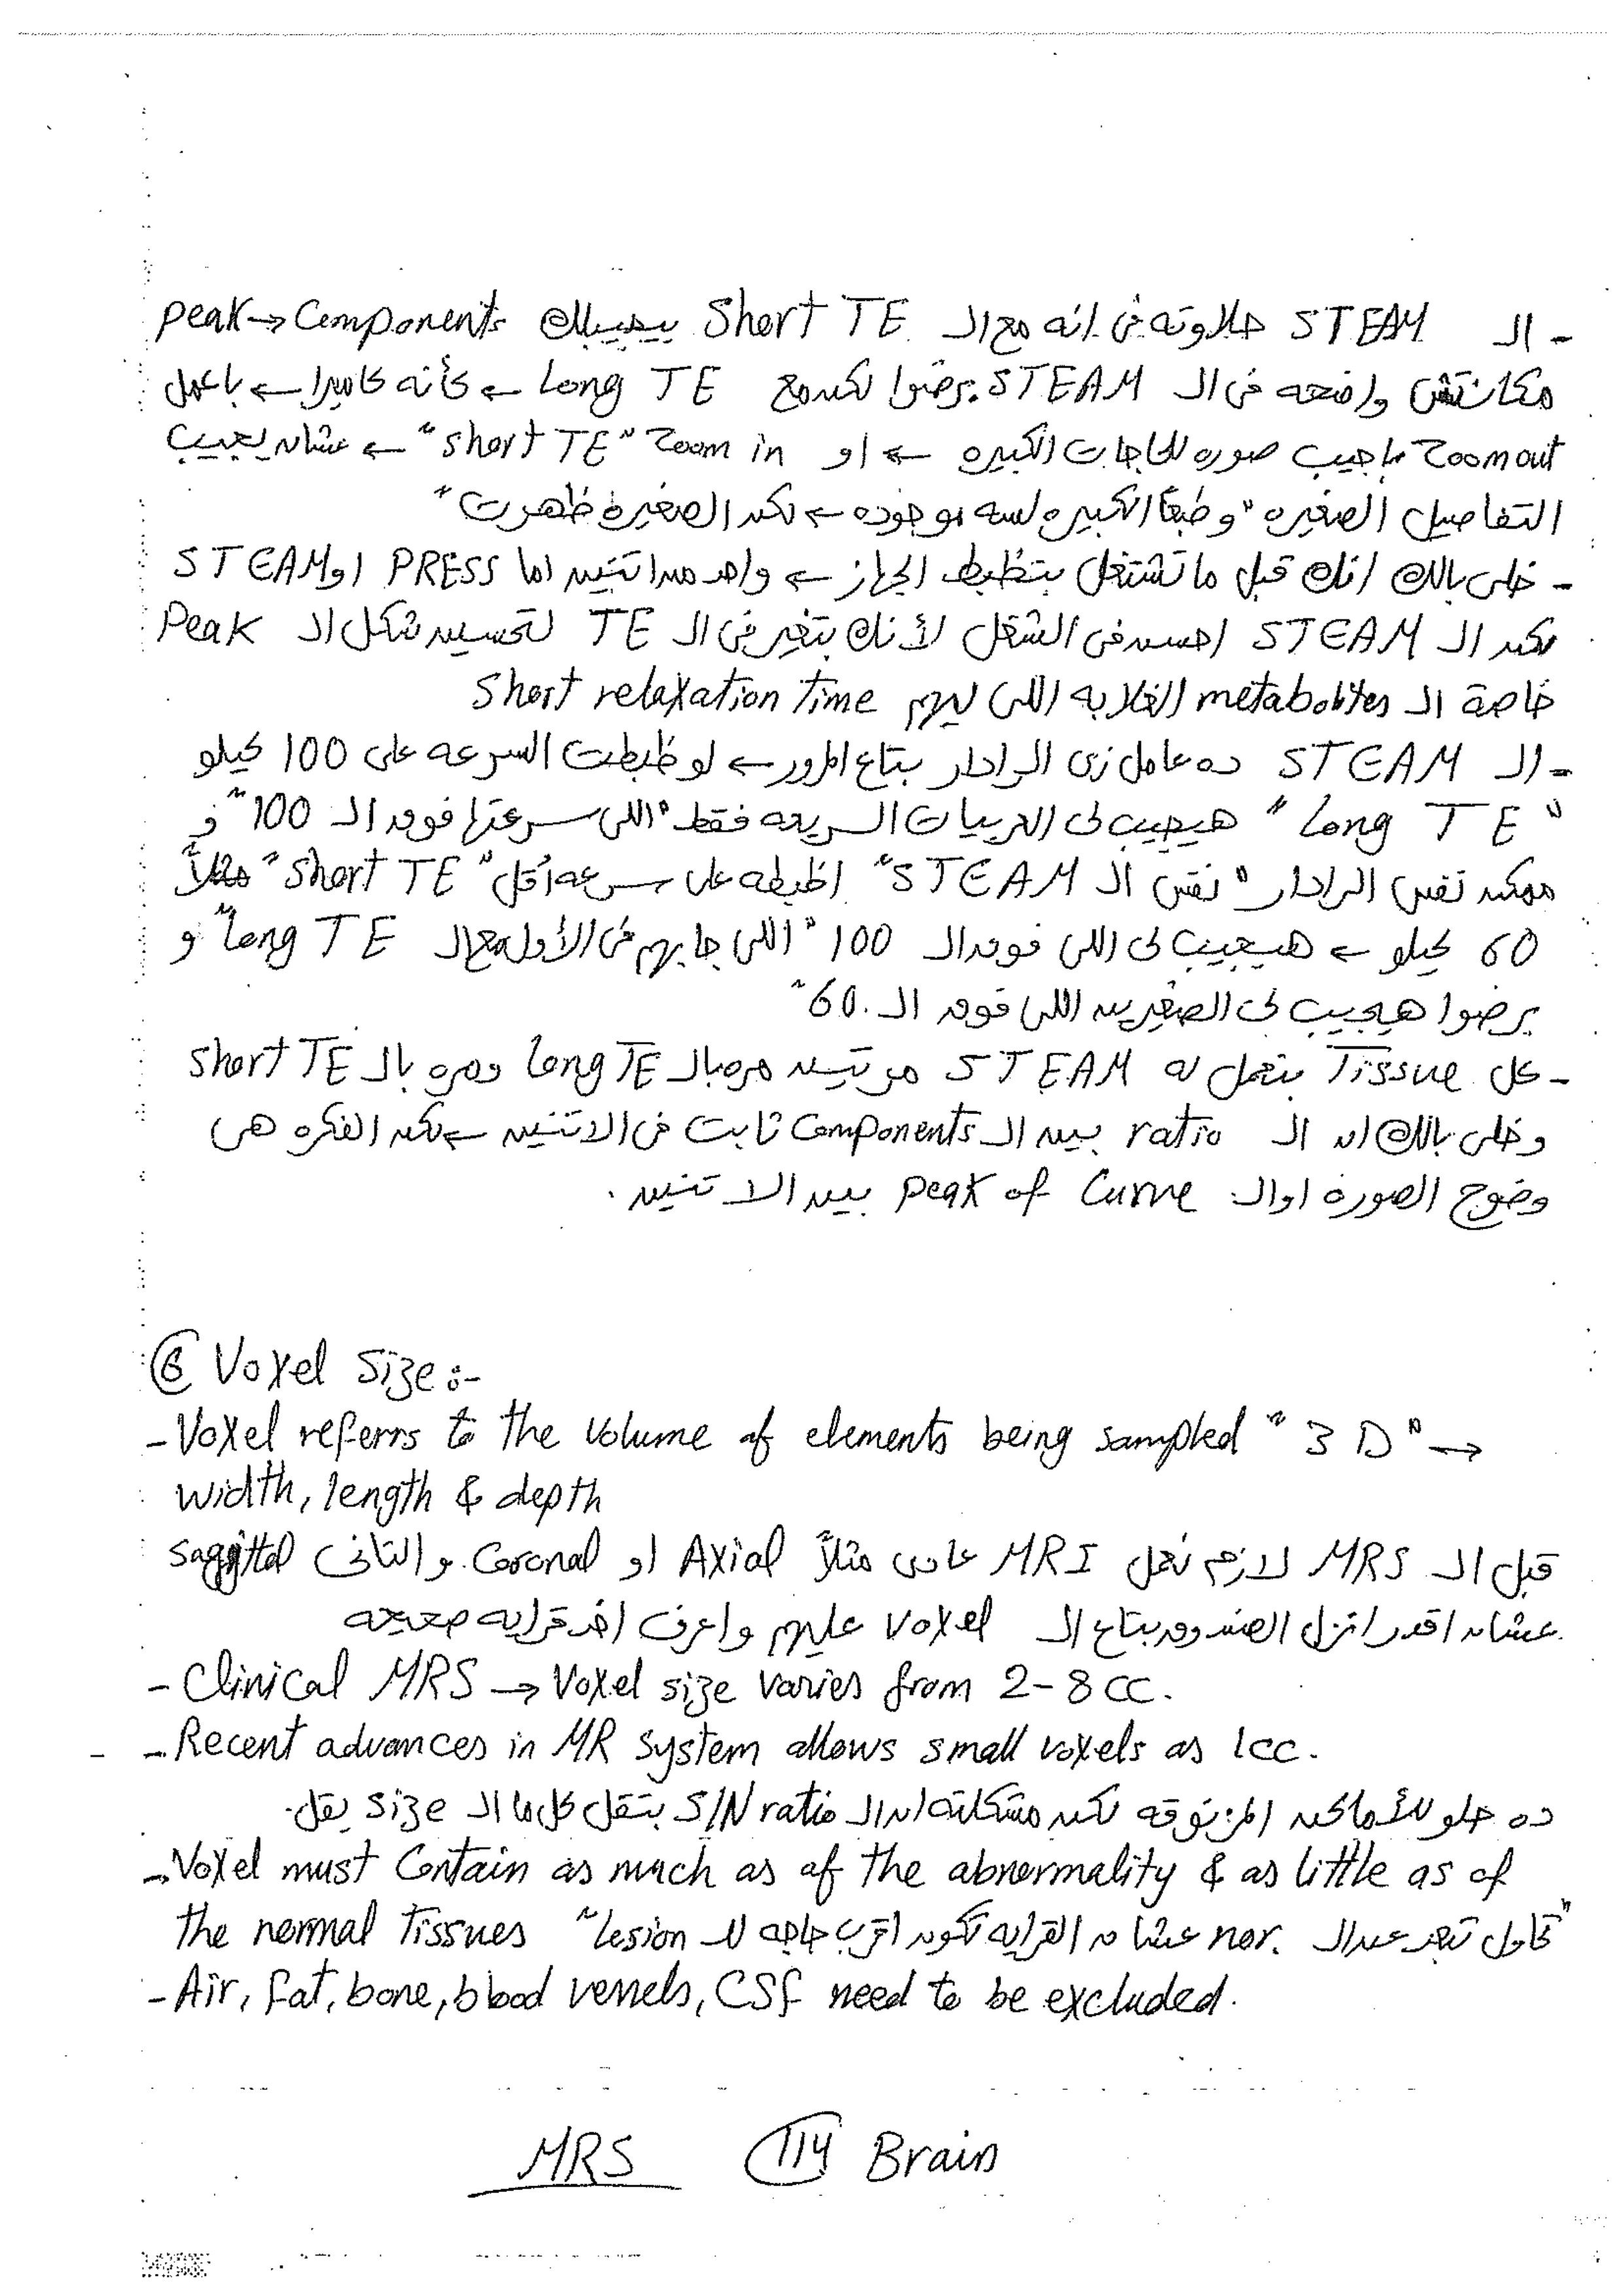 - الـ STEAM حلاوته فى انه مع الـ Short TE بيجيبلك peak → Components
مكانتش واضحه فى الـ STEAM برضوا لكن مع Long TE ← كأنه كاميرا ← باعمل
Zoom out باجيب صوره للحاجات الكبيره ← او Zoom in "short TE" ← عشان يجيب
التفاصيل الصغيره "وطبعاً الكبيره لسه موجوده ← لكن الصغيرة ظهرت"
- خلى بالك انك قبل ما تشتغل بتظبط الجهاز ← واحد من اتنين اما PRESS او STEAM
لكن الـ STEAM احسن فى الشغل لأنك بتغير فى الـ TE لتحسين شكل الـ Peak
خاصة الـ metabolites الغلابه اللى ليهم Short relaxation time
- الـ STEAM ده عامل زى الرادار بتاع المرور ← لو ظبطت السرعه على 100 كيلو
"Long TE" هيجيب لى العربيات السريعه فقط "اللى سرعتها فوق الـ 100" و
ممكن نفس الرادار "نفس الـ STEAM" اظبطه على سرعه أقل "Short TE" مثلاً
60 كيلو ← هيجيب لى اللى فوق الـ 100 "اللى جابهم فى الأول مع الـ Long TE" و
برضوا هيجيب لى الصغيرين اللى فوق الـ 60"
- كل Tissue بنعمل له STEAM مرتين مره بالـ Long TE ومره بالـ Short TE
وخلى بالك ان الـ ratio بين الـ Components ثابت فى الاتنين ← لكن الفكره هى
وضوح الصورة او الـ Peak of Curve بين الاتنين.
⑥ Voxel Size:-
- Voxel referrs to the volume of elements being sampled "3D" →
width, length & depth
قبل الـ MRS لازم نعمل MRI عادى مثلاً Axial او Coronal والتانى saggittal
عشان اقدر انزل الصندوق بتاع الـ voxel عليهم واعرف اخد قرايه صحيحه
- Clinical MRS → Voxel size varies from 2-8 cc.
- Recent advances in MR system allows small voxels as 1cc.
ده حلو للأماكن المزنوقه لكن مشكلته ان الـ S/N ratio بتقل كل ما الـ size يقل.
- Voxel must Contain as much as of the abnormality & as little as of
the normal Tissues "تحاول تبعد عن الـ nor. عشان القرايه تكون اقرب حاجه للـ lesion"
- Air, fat, bone, blood vessels, CSF need to be excluded.
MRS 114 Brain